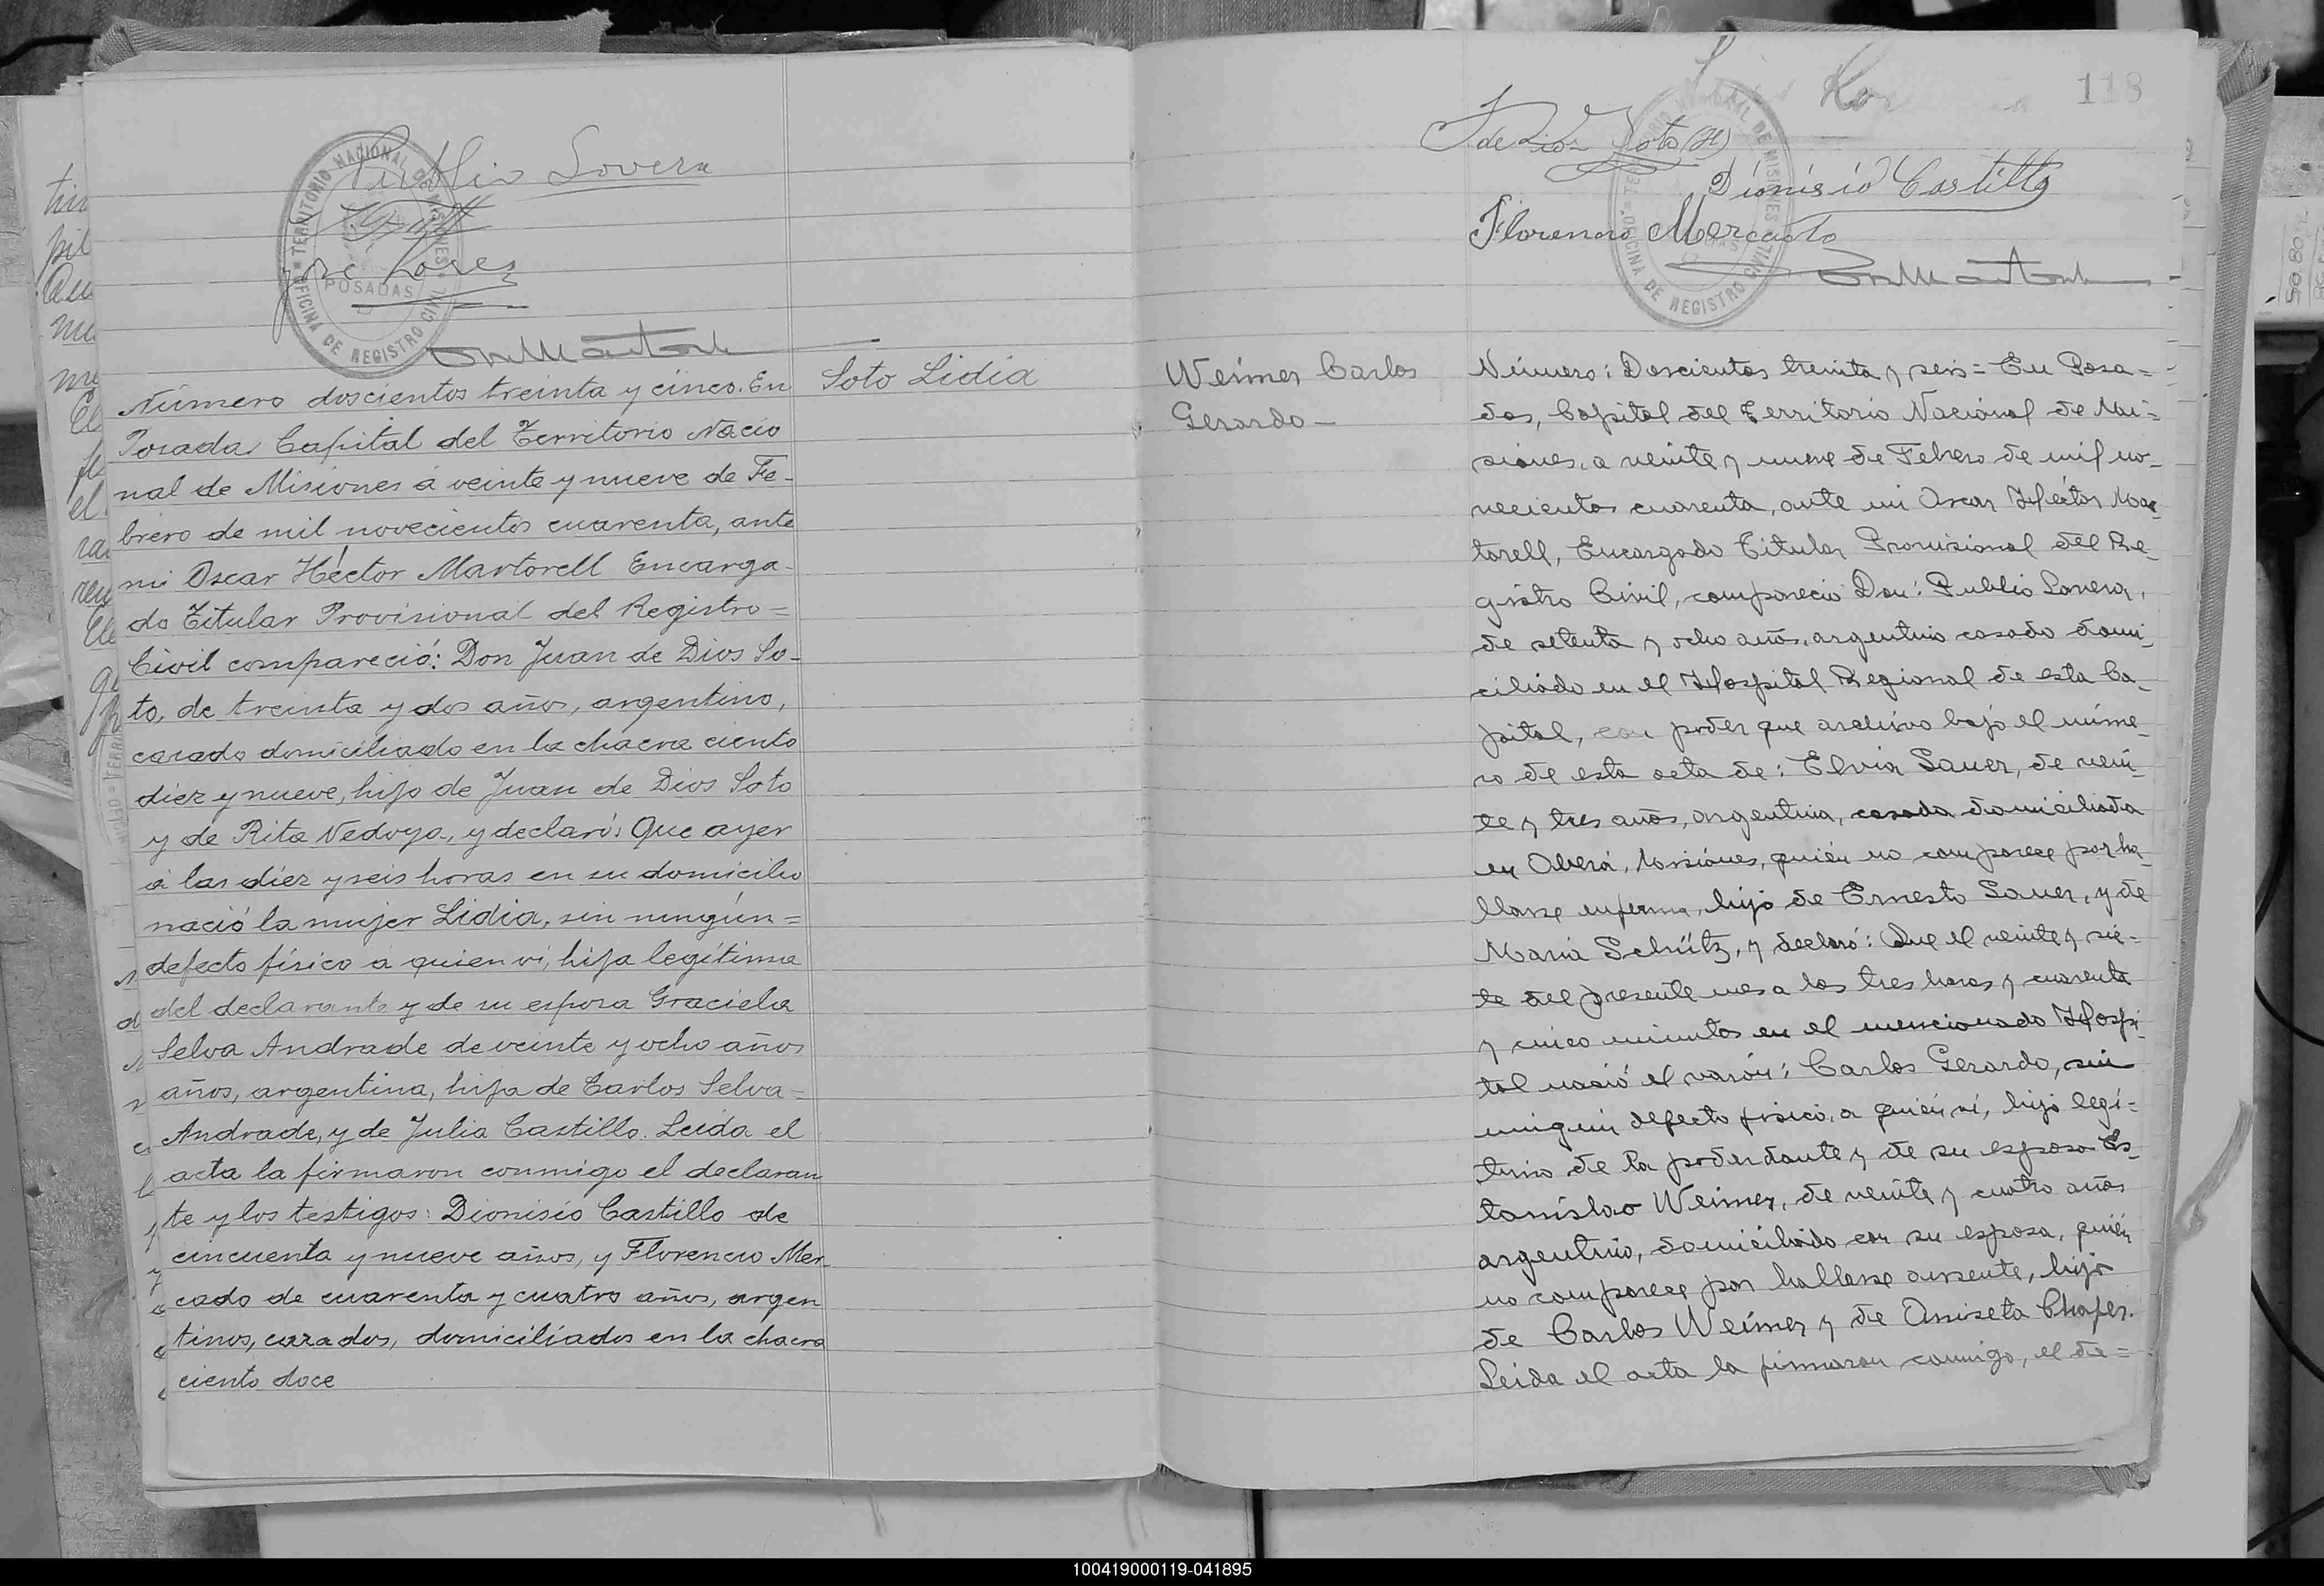 Publio Lovera
Jose Lores
TERRITORIO NACIONAL DE MISIONES
OFICINA DE REGISTRO CIVIL
POSADAS
Soto Lidia
Número doscientos treinta y cinco. En
Posadas Capital del Territorio Nacio
nal de Misiones á veinte y nueve de Fe-
brero de mil novecientos cuarenta, ante
mi Oscar Héctor Martorell Encarga-
do Titular Provisional del Registro=
Civil compareció: Don Juan de Dios So-
to, de treinta y dos años, argentino,
casado domiciliado en la chacra ciento
diez y nueve, hijo de Juan de Dios Soto
y de Rita Nedoya, y declaró: Que ayer
á las diez y seis horas en su domicilio
nació la mujer Lidia, sin ningún=
defecto físico a quien vi, hija legítima
del declarante y de su esposa Graciela
Selva Andrade de veinte y ocho años
años, argentina, hija de Carlos Selva=
Andrade, y de Julia Castillo. Leida el
acta la firmaron conmigo el declaran
te y los testigos: Dionisio Castillo de
cincuenta y nueve años, y Florencio Mer-
cado de cuarenta y cuatro años, argen
tinos, casados, domiciliados en la chacra
ciento doce
113
J de Dios Soto (H)
Dionisio Castillo
Florencio Mercado
TERRITORIO NACIONAL DE MISIONES
OFICINA DE REGISTRO CIVIL
Weimer Carlos
Gerardo-
Número: Doscientos treinta y seis= En Posa=
das, Capital del Territorio Nacional de Mi=
siones, a veinte y nueve de Febrero de mil no-
vecientos cuarenta, ante mi Oscar Héctor Mar-
torell, Encargado Titular Provisional del Re-
gistro Civil, compareció Don: Publio Lovera,
de setenta y ocho años, argentino casado domi-
ciliado en el Hospital Regional de esta Ca-
pital, con poder que archivo bajo el núme-
ro de esta acta de: Elvia Sauer, de vein-
te y tres años, argentina, casada domiciliada
en Oberá, Misiones, quién no comparece por ha-
llarse enferma, hija de Ernesto Sauer, y de
Maria Schütz, y declaró: Que el veinte y sie=
te del presente mes a las tres horas y cuarenta
y cinco minutos en el mencionado Hospi-
tal nació el varón: Carlos Gerardo, sin
ningún defecto físico, a quién vi, hijo legí=
timo de la poderdante y de su esposo Es-
tanislao Weimer, de veinte y cuatro años
argentino, domiciliado con su esposa, quién
no comparece por hallarse ausente, hijo
de Carlos Weimer y de Aniseta Chafer.
Leida el acta la firmaron conmigo, el de=
100419000119-041895